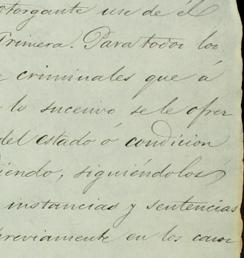 otorgante use de él
Primera. Para todos los
criminales que á
lo sucesivo se le ofrez
del estado ó condicion
siendo, siguiéndolos
instancias y sentencias
previamente en los casos